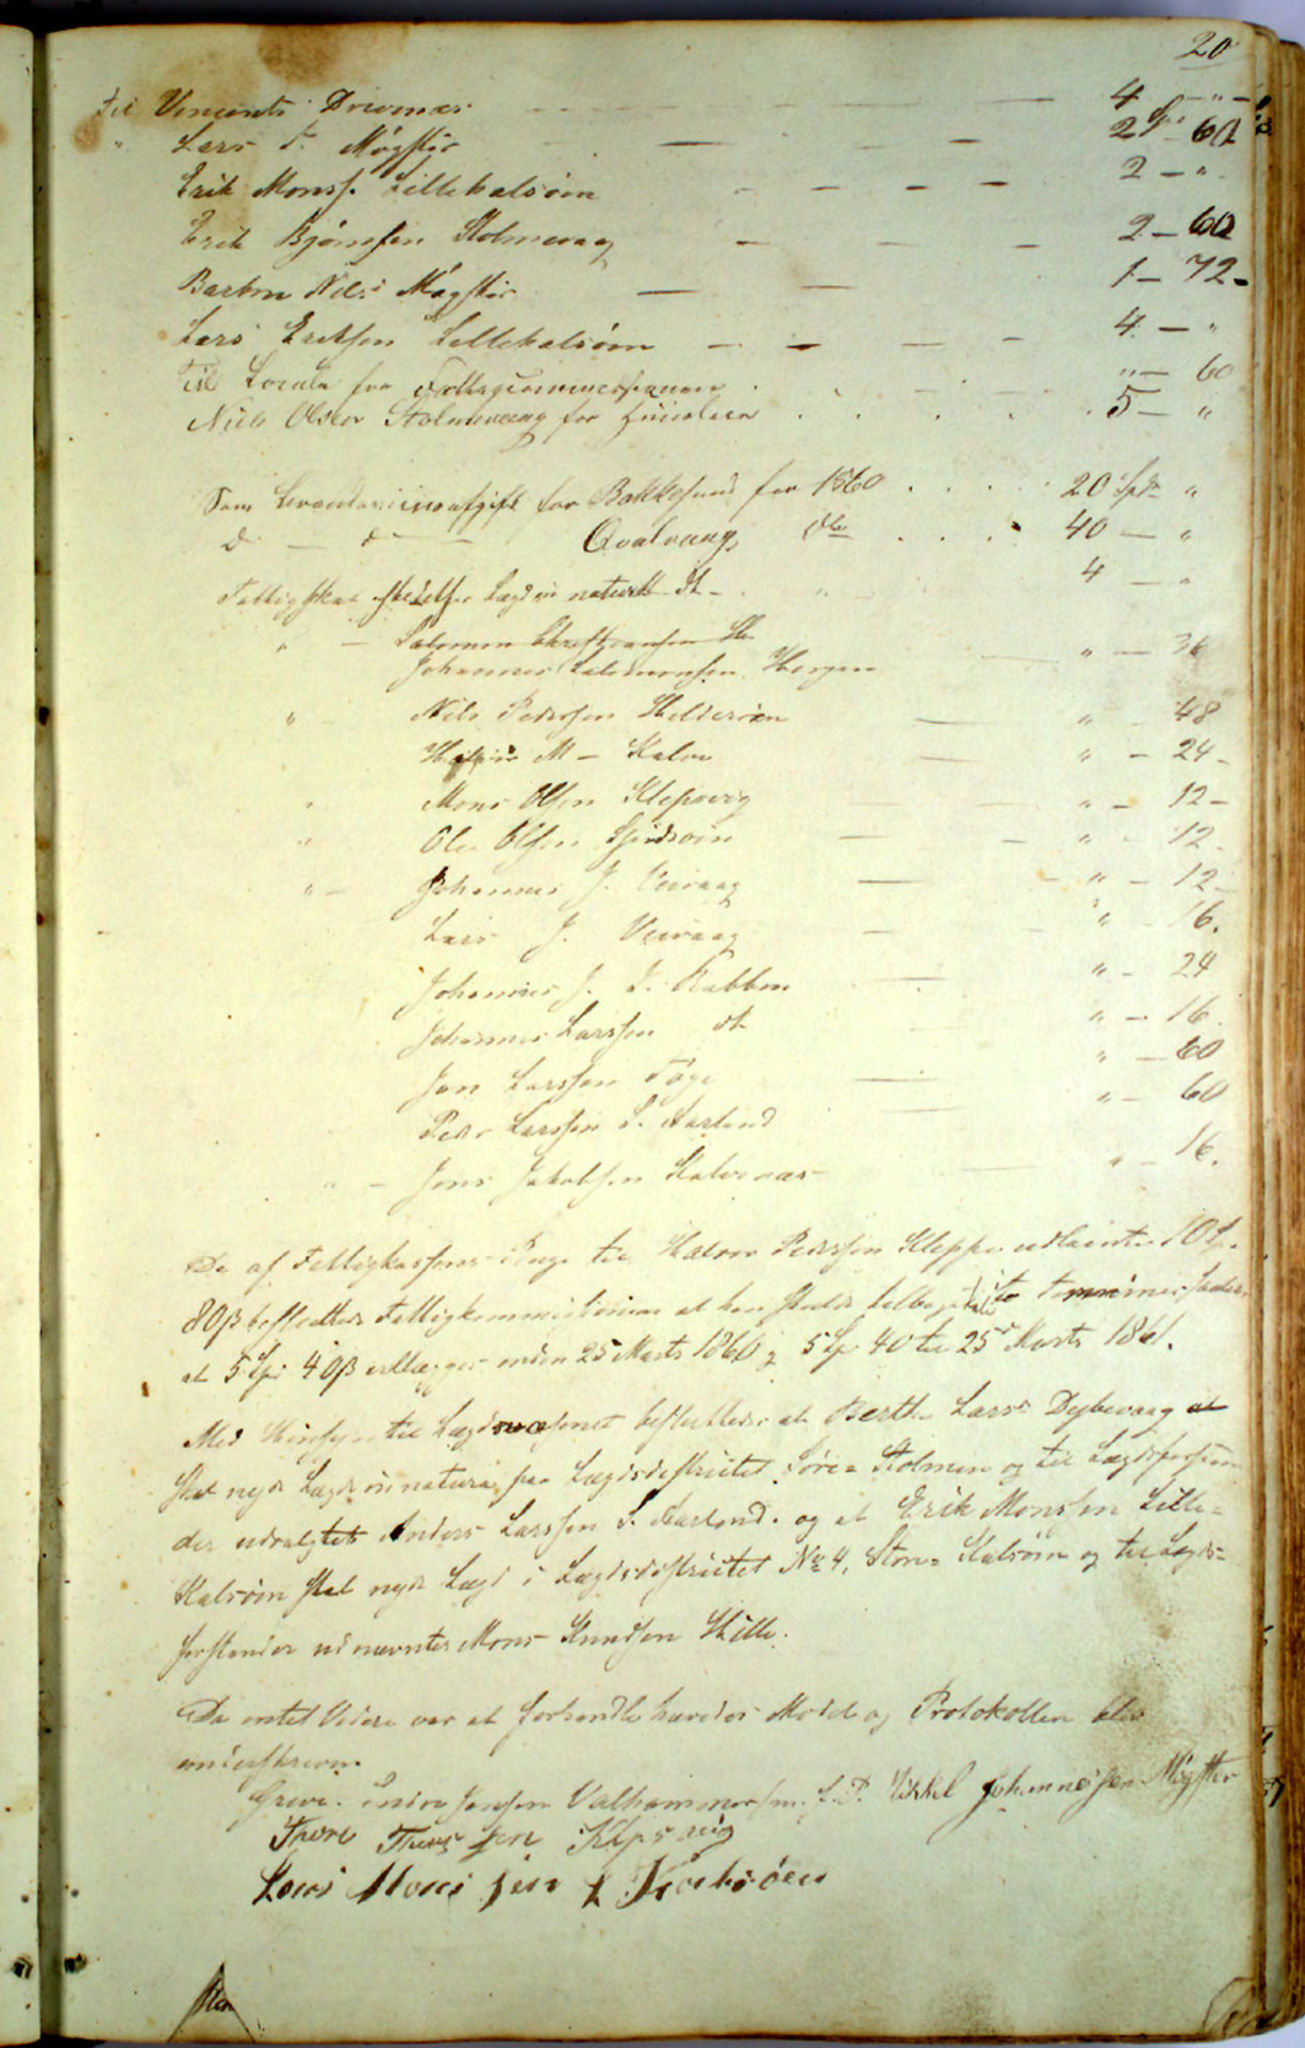 20
Til Vincents Drivenæs — 4 — "
" Lars T. Møgster — 2 Sp. 60
Erik Monss. Lillekalsøen — 2 — "
Erik Bjørnsen Stolmevaag — 2 — 60
Barbra Nils: Møgster — 1 — 72
Lars Eriksen Lillekalsøen — 4 — "
Til Locale for " — 60
Niels Olsen Stolmevaag for 5 — "
Som for Bakkesund for 1860 . . . 20 Spdr "
d — d — Qvalvaag do . . . 40 — "
Fattigskat Lægd in natura 4 — "
" — Salomon Christiansen
Johannes Salomonsen Horgen " — 36
" Nils Pedersen Heldersøen " — 48
M — Kalve " — 24
" Mons Olsen Klepsvig " — 12
" Ole Olsen " — 12
" — Johannes J. Veivaag " — 12
Lars J. Veivaag " — 16.
Johannes J. Rabben " — 24
Johannes Larssen dt " — 16.
Jon Larssen Føye " — 60
Peder Larssen S. Aarland " — 60
" — Jens Jakobsen Kalvenæs " — 16.
De af Fattigkassens Penge til Halvor Pedersen Kleppe udlaante 10 Sp.
80 β besluttede Fattigkommissionen at han skulde tilbagebetale i to Terminer saaledes
at 5 Sp: 40 β erlægges inden 25 Marts 1860 og 5 Sp 40 til 25de Marts 1861.
Med Hensyn til Lægdsvæsenet besluttedes at Berthe Larsd. Dybevaag at
skal nyde Lægd in natura paa Lægdsdistriktet Søre= Stolmen og til Lægdsforstan
der udvalgtes Anders Larssen S. Aarland. og at Erik Monssen Lille=
Kalsøen skal nyde Lægd i Lægdsdistriktet No 4, Store= Kalsøen og til Lægds=
forstander udnævntes Mons Knudsen Hille.
Da intet Videre var at forhandle hævedes Mødet og Protokollen blev
underskreven.
Greve. Endre Jensen Valhammersm. L. P. Mikkel Johannessen Møgster
Thore Thores sen Klepsvig
Lars Mons sen L Kalsøen